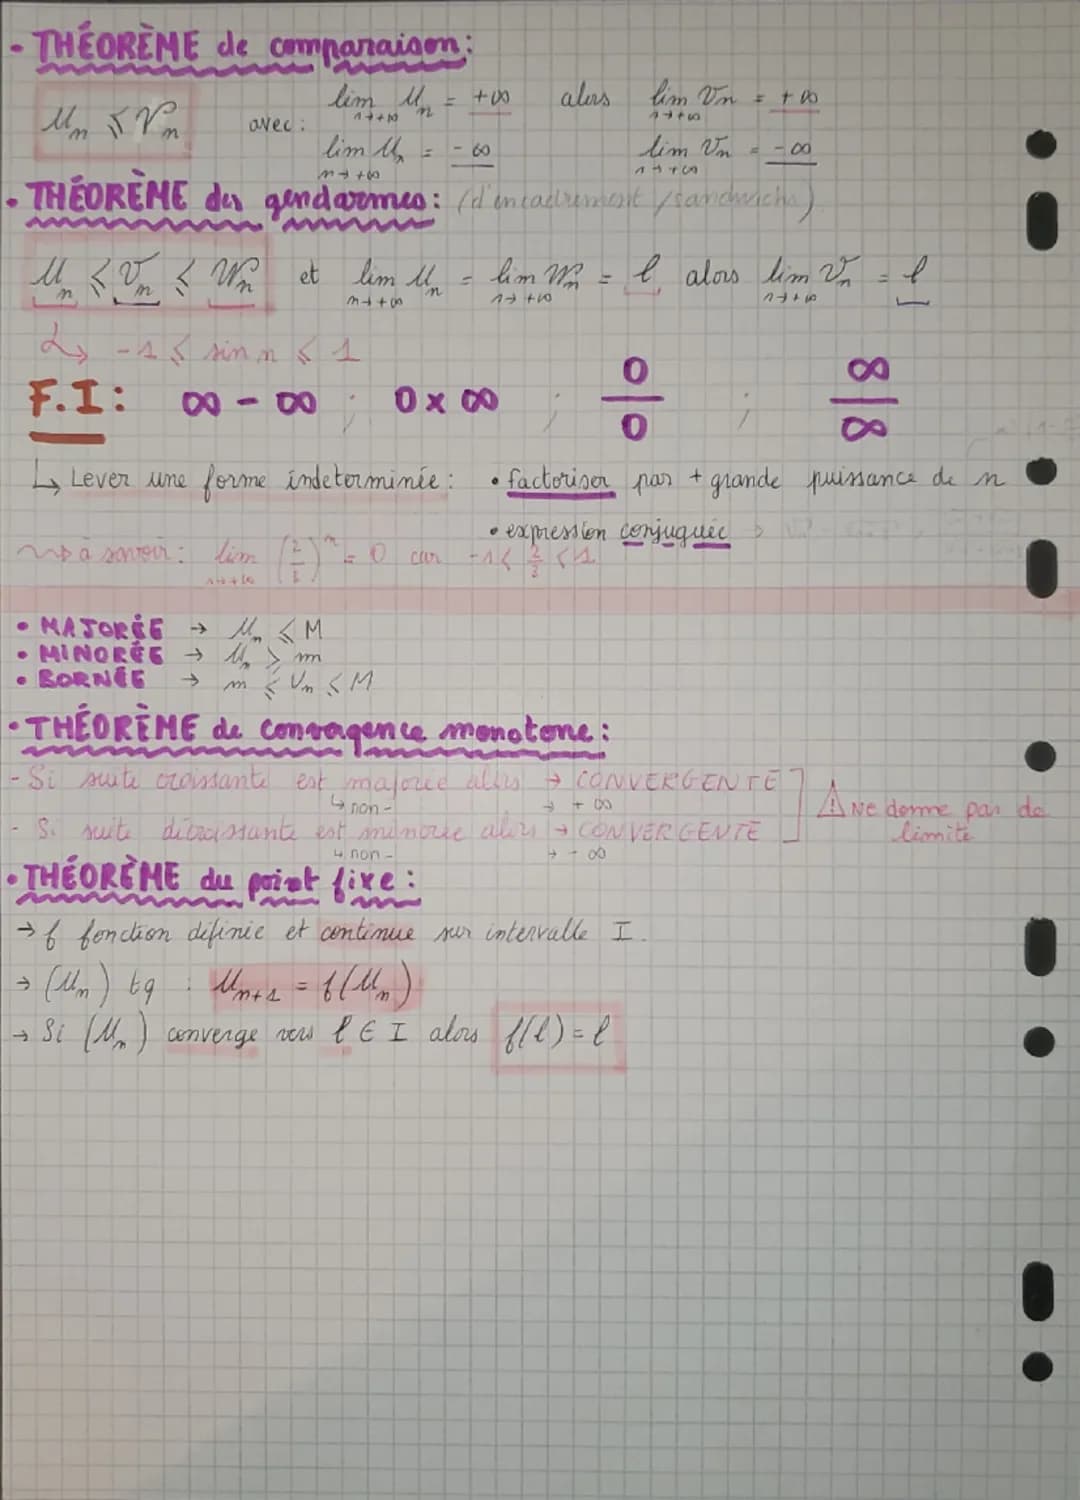 • THÉORÈME de comparaison :
Un ≤ Vn avec : lim Un = +∞ alors lim Vn = +∞
n→+∞ n→+∞
lim Un = -∞ lim Vn = -∞
n→+∞ n→+∞
• THÉORÈME des gendarmes : (d'encadrement / sandwich)
Un ≤ Vn ≤ Wn et lim Un = lim Wn = l alors lim Vn = l
n→+∞ n→+∞ n→+∞
↳ -1 ≤ sin n ≤ 1
F.I : ∞ - ∞ ; 0 x ∞ ; 0/0 ; ∞/∞
↳ Lever une forme indeterminée : • factoriser par + grande puissance de n
• expression conjuguée
⇝ à savoir : lim (2/3)^n = 0 car -1 < 2/3 < 1
n→+∞
• MAJORÉE → Un ≤ M
• MINORÉE → Un ≥ m
• BORNÉE → m ≤ Un ≤ M
• THÉORÈME de convergence monotone :
- Si suite croissante est majorée alors → CONVERGENTE
↳ non - → + ∞
⚠ Ne donne pas de
limite
- Si suite décroissante est minorée alors → CONVERGENTE
↳ non - → - ∞
• THÉORÈME du point fixe :
→ f fonction définie et continue sur intervalle I.
→ (Un) tq : Un+1 = f(Un)
→ Si (Un) converge vers l ∈ I alors f(l) = l